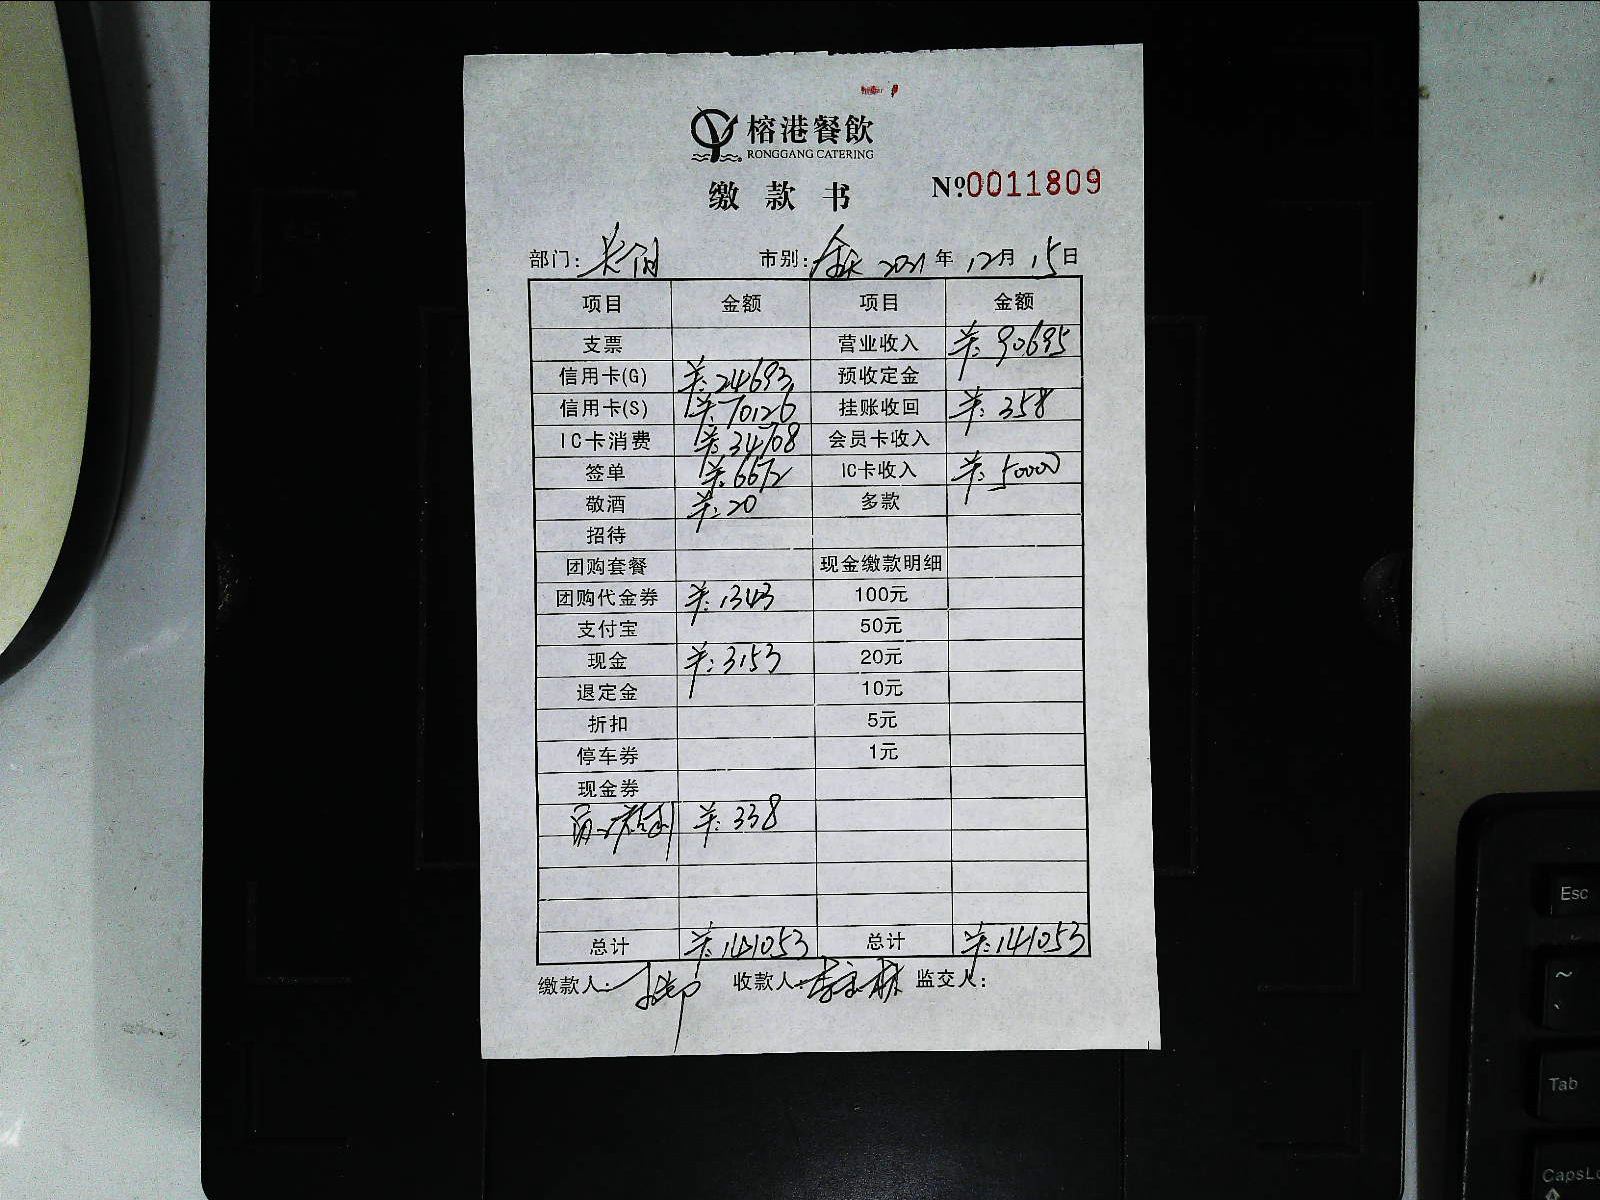 榕港餐飲
RONGGANG CATERING
缴款书
Nº0011809
部门: 市别:全天 2021年12月15日
项目 金额 项目 金额
支票 营业收入 ¥:90695
信用卡(G) ¥:24693 预收定金
信用卡(S) ¥:70126 挂账收回 ¥:358
IC卡消费 ¥:34708 会员卡收入
签单 ¥:6672 IC卡收入 ¥:50000
敬酒 ¥:20 多款
招待
团购套餐 现金缴款明细
团购代金券 ¥:1343 100元
支付宝 50元
现金 ¥:3153 20元
退定金 10元
折扣 5元
停车券 1元
现金券
¥:338
总计 ¥:141053 总计 ¥:141053
缴款人: 收款人: 监交人:
Esc
~
`
Tab
CapsLo